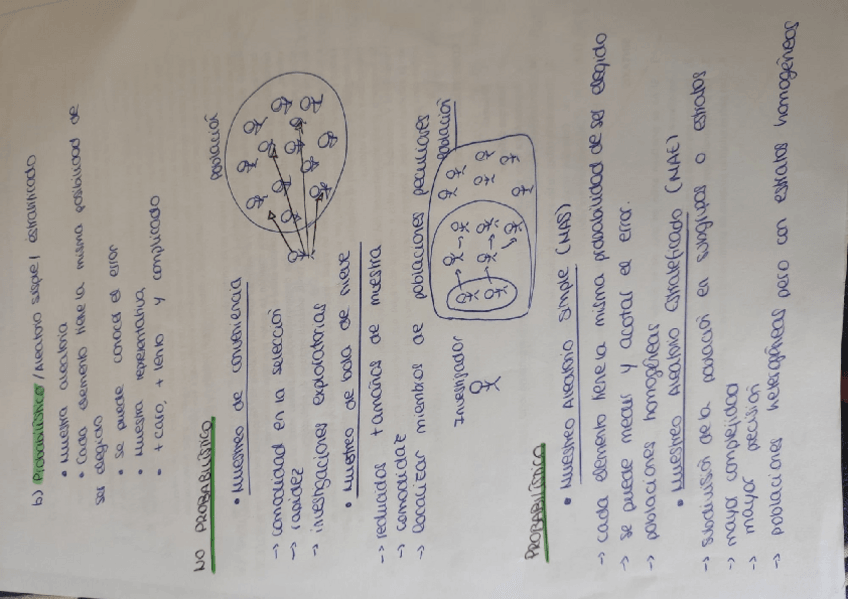 b) Probabilístico / Aleatorio simple / estratificado
• Muestra aleatoria
• Cada elemento tiene la misma posibilidad de
ser elegido
• se puede conocer el error
• Muestra representativa
• + caro, + lento y complicado
NO PROBABILÍSTICO
• Muestreo de conveniencia
Población
→ comodidad en la selección
→ rapidez
→ investigaciones exploratorias
• Muestreo de bola de nieve
→ reducidos tamaños de muestra
→ comodidad
→ localizar miembros de poblaciones peculiares
Investigador
Población
PROBABILÍSTICO
• Muestreo Aleatorio Simple (MAS)
→ cada elemento tiene la misma probabilidad de ser elegido
→ se puede medir y acotar el error.
→ poblaciones homogéneas
• Muestreo Aleatorio Estratificado (MAE)
→ subdivisión de la población en subgrupos o estratos
→ mayor complejidad
→ mayor precisión
→ poblaciones heterogéneas pero con estratos homogéneos